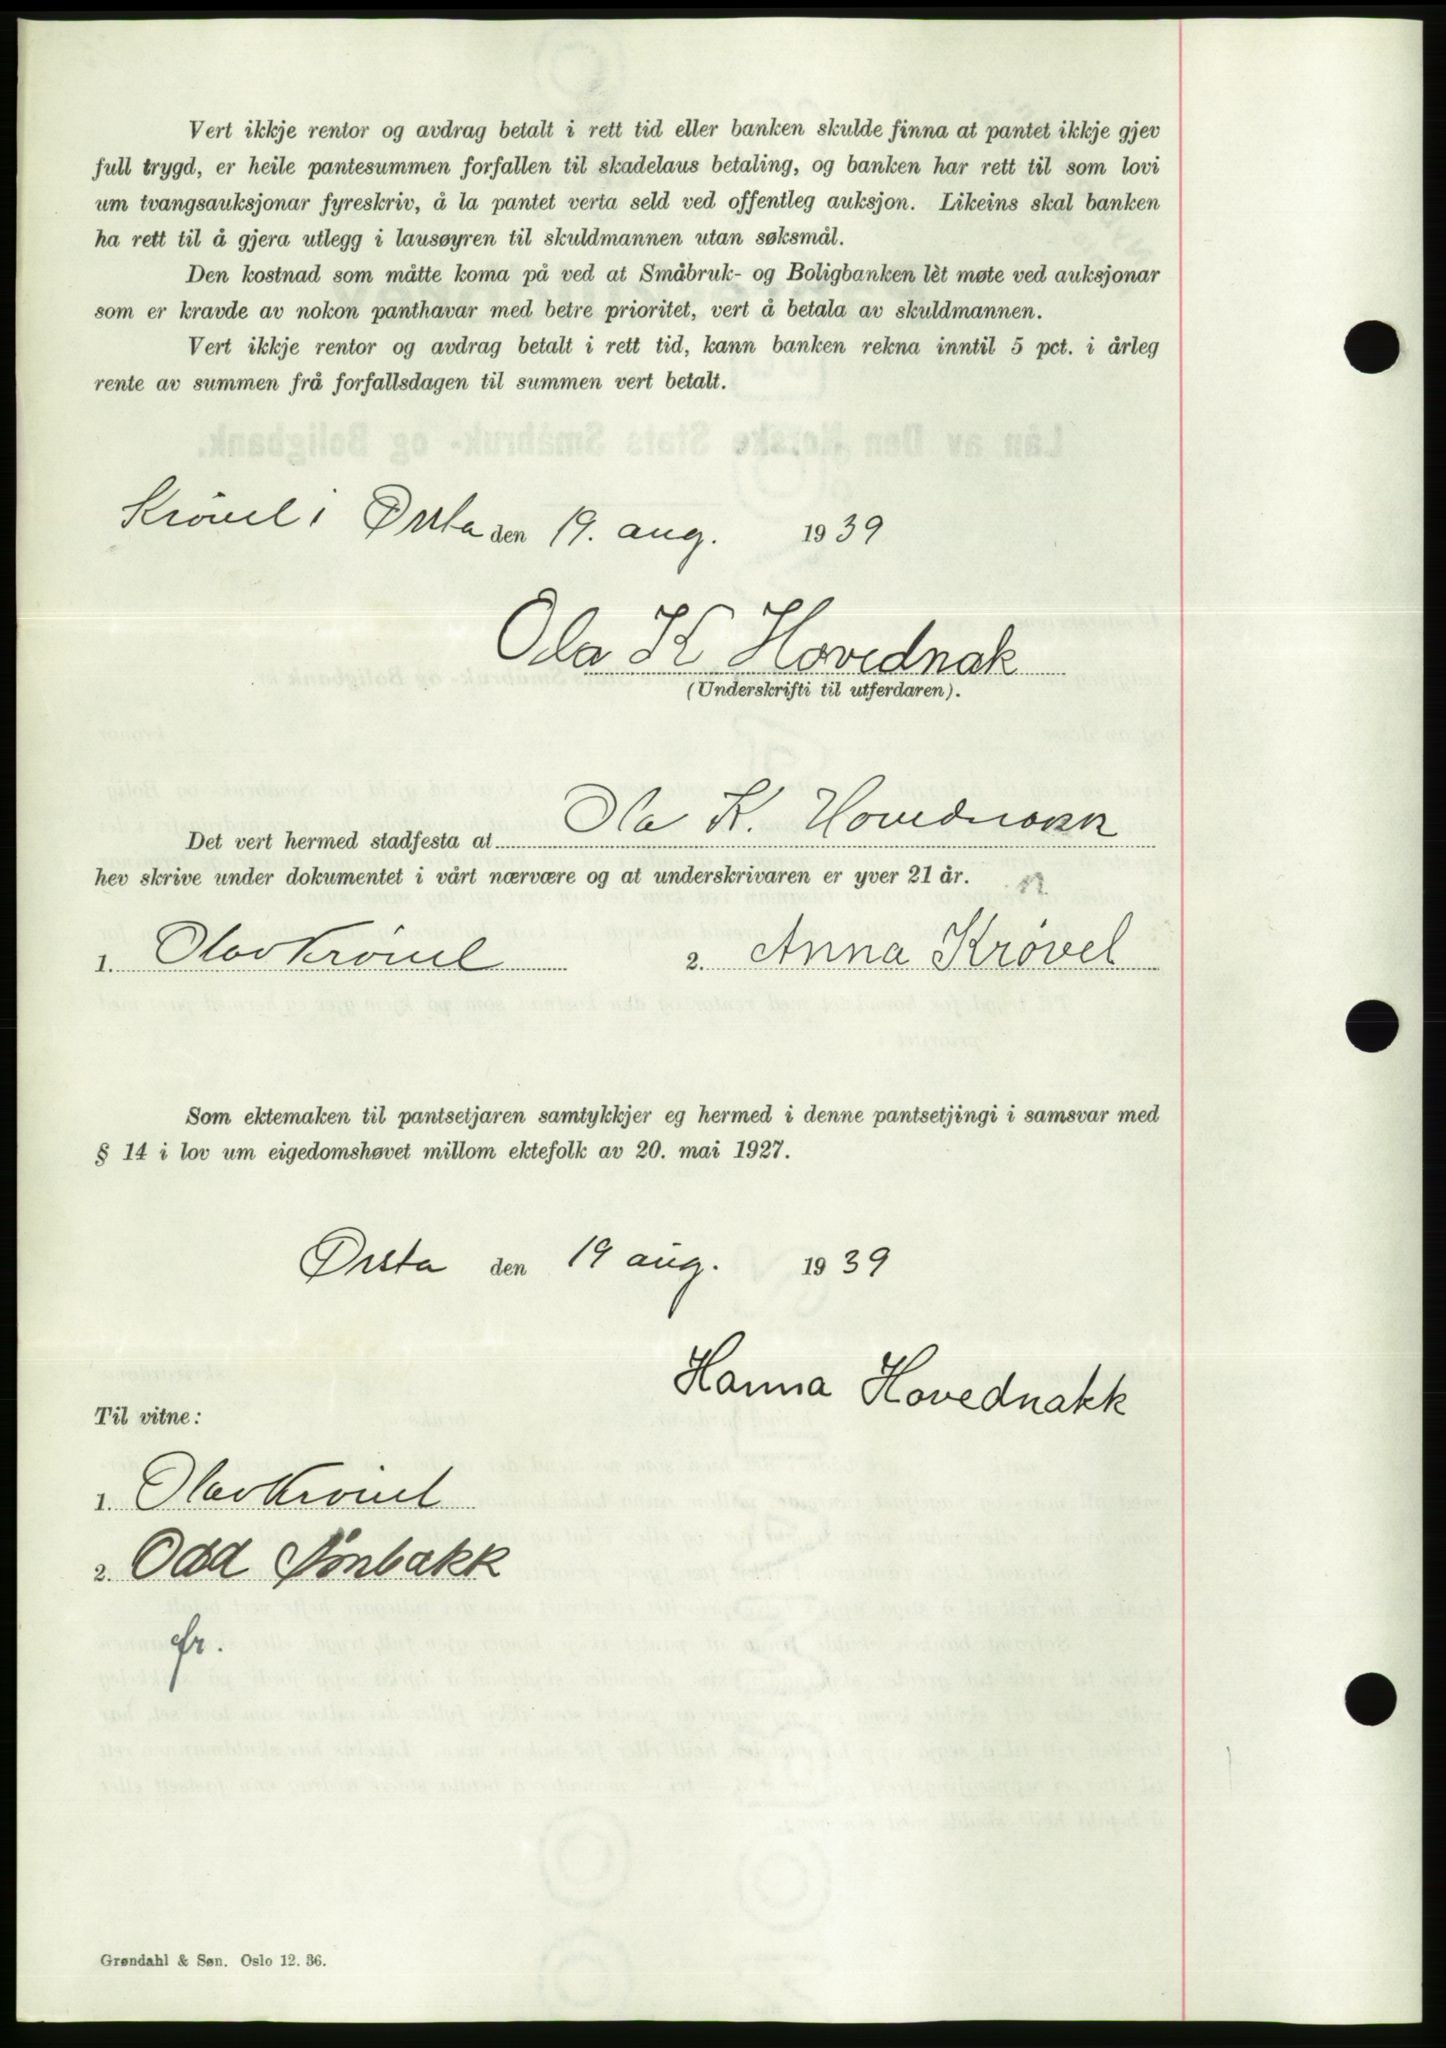 Vert ikkje rentor og avdrag betalt i rett tid eller banken skulde finna at pantet ikkje gjev
full trygd, er heile pantesummen forfallen til skadelaus betaling, og banken har rett til som lovi
um tvangsauksjonar fyreskriv, å la pantet verta seld ved offentleg auksjon. Likeins skal banken
ha rett til å gjera utlegg i lausøyren til skuldmannen utan søksmål.
Den kostnad som måtte koma på ved at Småbruk- og Boligbanken lèt møte ved auksjonar
som er kravde av nokon panthavar med betre prioritet, vert å betala av skuldmannen.
Vert ikkje rentor og avdrag betalt i rett tid, kann banken rekna inntil 5 pct. i årleg
rente av summen frå forfallsdagen til summen vert betalt.
Krövel i Ørsta den 19. aug. 1939
Ola K Hovednak
(Underskrifti til utferdaren).
Det vert hermed stadfesta at Ola K. Hovednakk
hev skrive under dokumentet i vårt nærvære og at underskrivaren er yver 21 år.
1. Olav Krövel 2. Anna Krövel
Som ektemaken til pantsetjaren samtykkjer eg hermed i denne pantsetjingi i samsvar med
§ 14 i lov um eigedomshøvet millom ektefolk av 20. mai 1927.
Ørsta den 19 aug. 1939
Hanna Hovednakk
Til vitne:
1. Olav Krövel
2. Odd
fr.
Grøndahl & Søn. Oslo 12. 36.